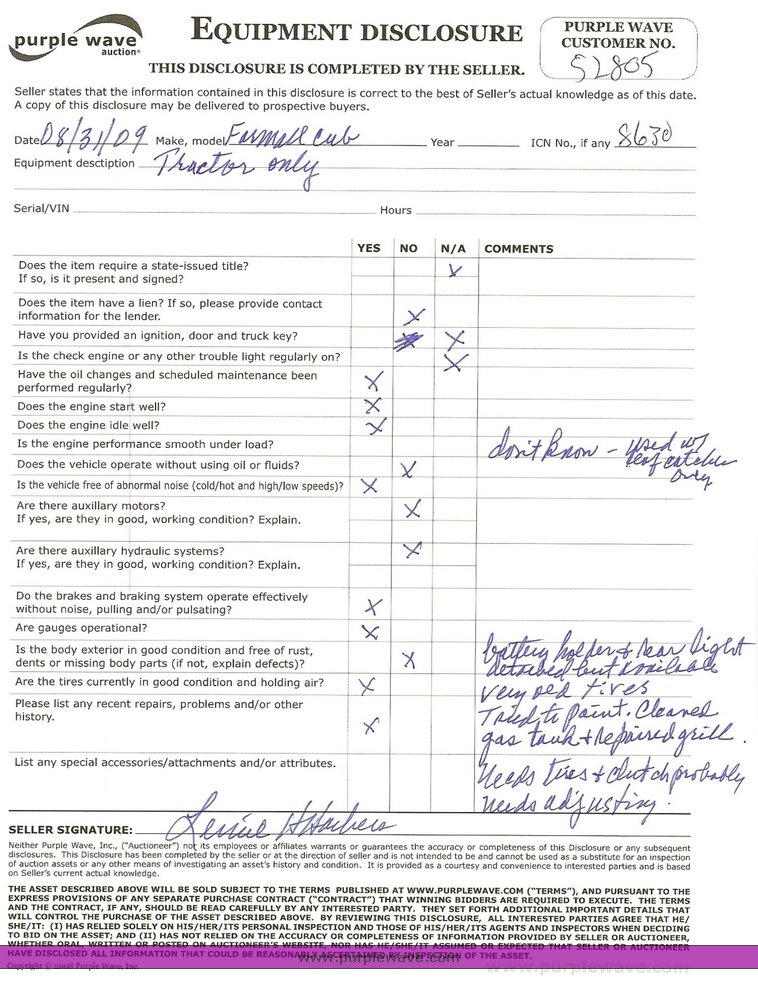 purple wave
auction®
EQUIPMENT DISCLOSURE
THIS DISCLOSURE IS COMPLETED BY THE SELLER.
PURPLE WAVE
CUSTOMER NO.
52805
Seller states that the information contained in this disclosure is correct to the best of Seller's actual knowledge as of this date.
A copy of this disclosure may be delivered to prospective buyers.
Date 08/31/09 Make, model Farmall cub Year ICN No., if any 8630
Equipment desctiption Tractor only
Serial/VIN Hours
YES NO N/A COMMENTS
Does the item require a state-issued title? X
If so, is it present and signed?
Does the item have a lien? If so, please provide contact
information for the lender. X
Have you provided an ignition, door and truck key? X X
Is the check engine or any other trouble light regularly on? X
Have the oil changes and scheduled maintenance been
performed regularly? X
Does the engine start well? X
Does the engine idle well? X
Is the engine performance smooth under load? don't know - used w/
leaf catcher
only
Does the vehicle operate without using oil or fluids? X
Is the vehicle free of abnormal noise (cold/hot and high/low speeds)? X
Are there auxillary motors? X
If yes, are they in good, working condition? Explain.
Are there auxillary hydraulic systems? X
If yes, are they in good, working condition? Explain.
Do the brakes and braking system operate effectively
without noise, pulling and/or pulsating? X
Are gauges operational? X
Is the body exterior in good condition and free of rust, battery holder & rear light
dents or missing body parts (if not, explain defects)? X detached but available
Are the tires currently in good condition and holding air? X very old tires
Please list any recent repairs, problems and/or other Tried to paint. Cleaned
history. X gas tank & repaired grill.
List any special accessories/attachments and/or attributes. Needs tires & clutch probably
needs adjusting.
SELLER SIGNATURE:
Neither Purple Wave, Inc., ("Auctioneer") nor its employees or affiliates warrants or guarantees the accuracy or completeness of this Disclosure or any subsequent
disclosures. This Disclosure has been completed by the seller or at the direction of seller and is not intended to be and cannot be used as a substitute for an inspection
of auction assets or any other means of investigating an asset's history and condition. It is provided as a courtesy and convenience to interested parties and is based
on Seller's current actual knowledge.
THE ASSET DESCRIBED ABOVE WILL BE SOLD SUBJECT TO THE TERMS PUBLISHED AT WWW.PURPLEWAVE.COM ("TERMS"), AND PURSUANT TO THE
EXPRESS PROVISIONS OF ANY SEPARATE PURCHASE CONTRACT ("CONTRACT") THAT WINNING BIDDERS ARE REQUIRED TO EXECUTE. THE TERMS
AND THE CONTRACT, IF ANY, SHOULD BE READ CAREFULLY BY ANY INTERESTED PARTY. THEY SET FORTH ADDITIONAL IMPORTANT DETAILS THAT
WILL CONTROL THE PURCHASE OF THE ASSET DESCRIBED ABOVE. BY REVIEWING THIS DISCLOSURE, ALL INTERESTED PARTIES AGREE THAT HE/
SHE/IT: (I) HAS RELIED SOLELY ON HIS/HER/ITS PERSONAL INSPECTION AND THOSE OF HIS/HER/ITS AGENTS AND INSPECTORS WHEN DECIDING
TO BID ON THE ASSET; AND (II) HAS NOT RELIED ON THE ACCURACY OR COMPLETENESS OF INFORMATION PROVIDED BY SELLER OR AUCTIONEER,
WHETHER ORAL, WRITTEN OR POSTED ON AUCTIONEER'S WEBSITE, NOR HAS HE/SHE/IT ASSUMED OR EXPECTED THAT SELLER OR AUCTIONEER
HAVE DISCLOSED ALL INFORMATION THAT COULD BE REASONABLY ASCERTAINED BY INSPECTION OF THE ASSET.
www.purplewave.com
Copyright © 2008 Purple Wave, Inc.
www.purplewave.com